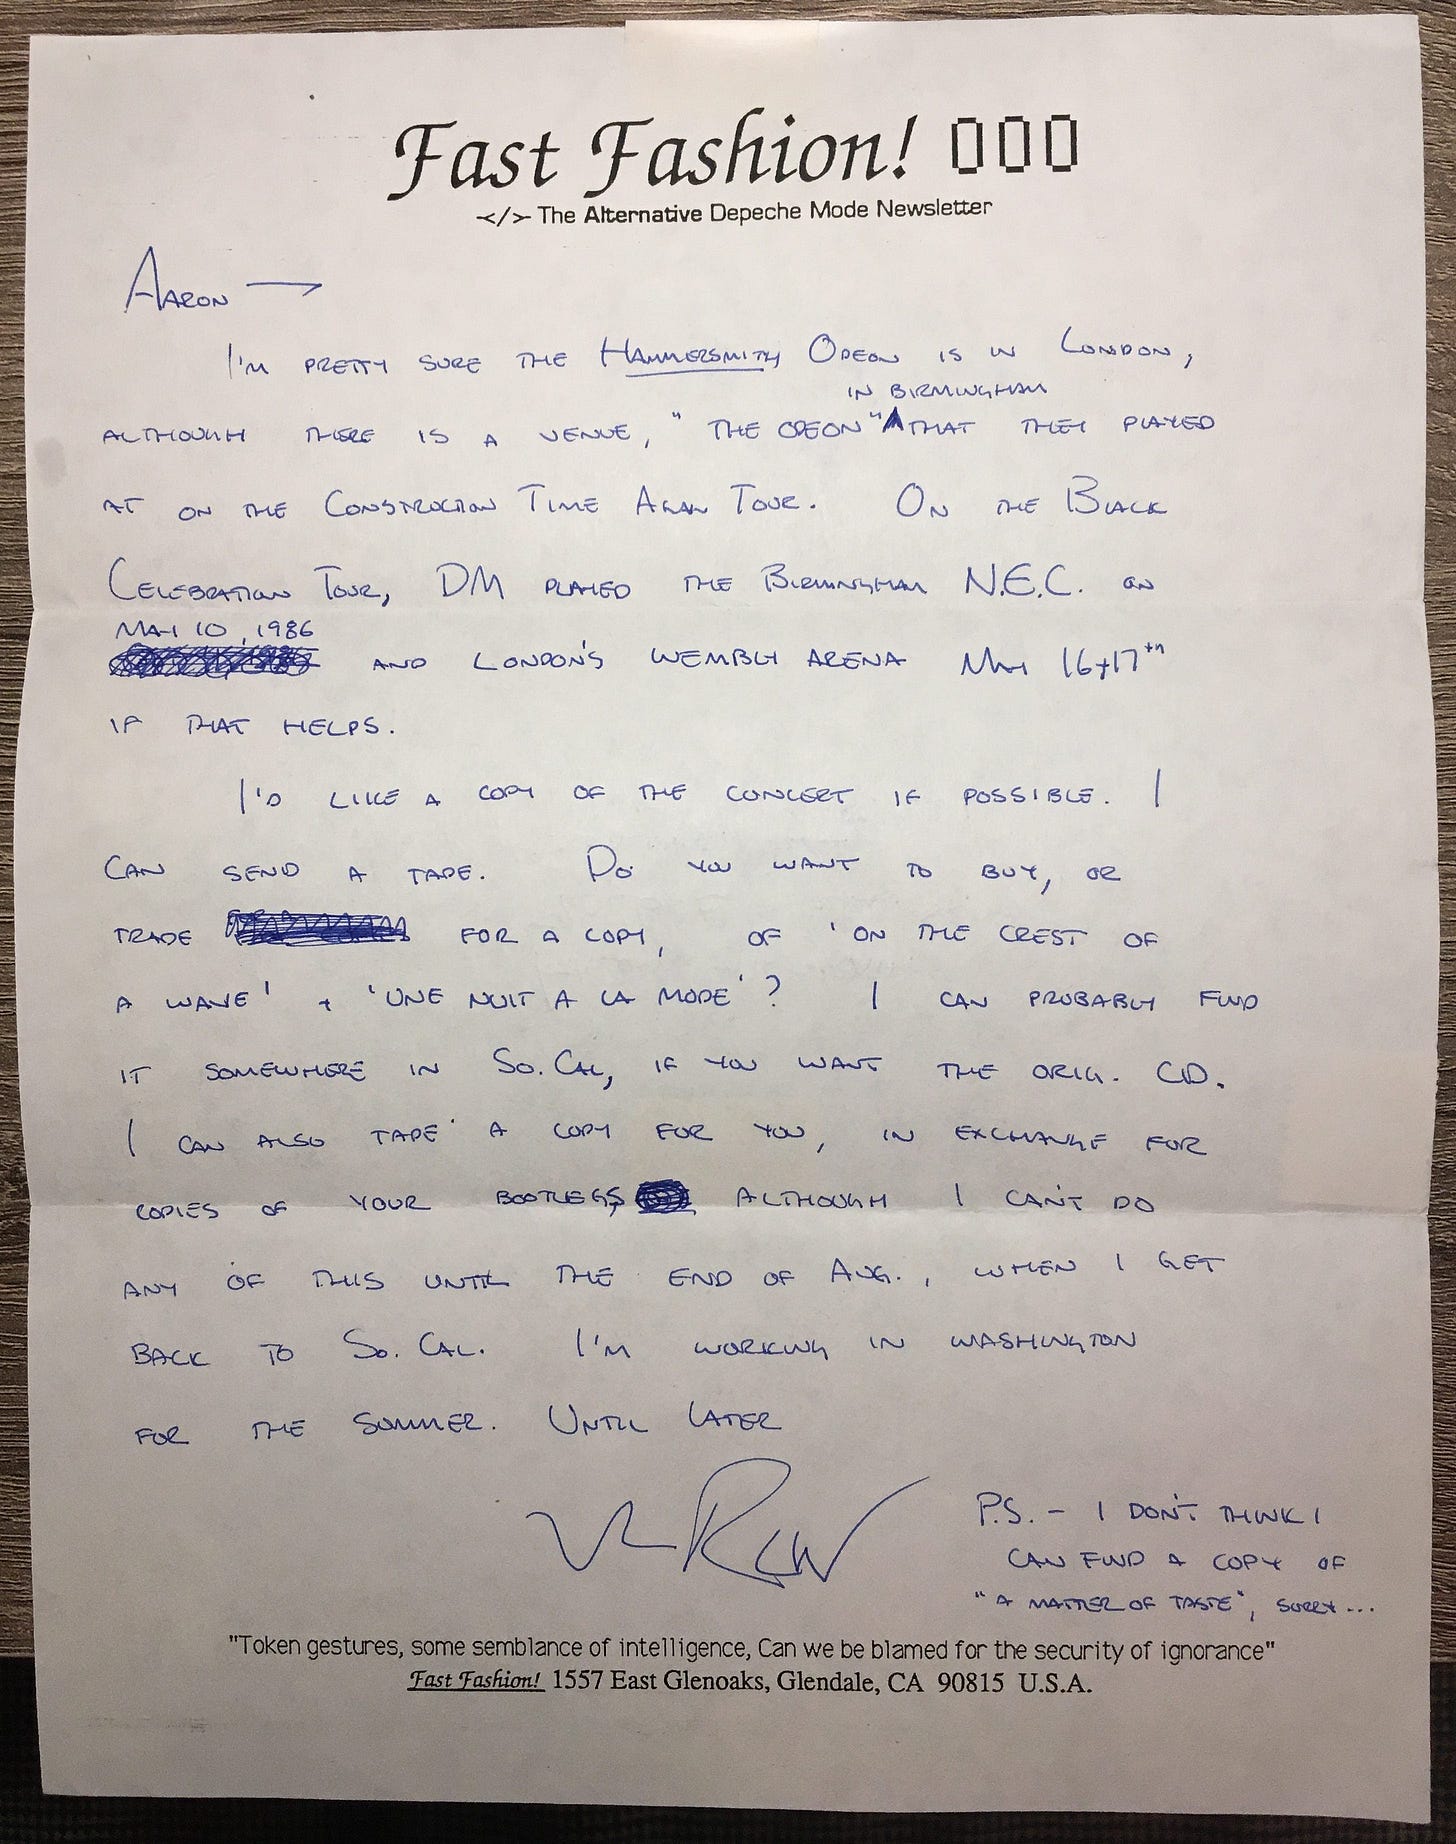 Fast Fashion! 
-</>- The Alternative Depeche Mode Newsletter
AARON —
I'M PRETTY SURE THE HAMMERSMITH ODEON IS IN LONDON,
IN BIRMINGHAM
ALTHOUGH THERE IS A VENUE, "THE ODEON" ^ THAT THEY PLAYED
AT ON THE CONSTRUCTION TIME AGAIN TOUR. ON THE BLACK
CELEBRATION TOUR, DM PLAYED THE BIRMINGHAM N.E.C. ON
MAY 10, 1986
AND LONDON'S WEMBLY ARENA MAY 16+17th
IF THAT HELPS.
I'D LIKE A COPY OF THE CONCERT IF POSSIBLE. I
CAN SEND A TAPE. DO YOU WANT TO BUY, OR
TRADE FOR A COPY, OF 'ON THE CREST OF
A WAVE' + 'UNE NUIT A LA MODE'? I CAN PROBABLY FIND
IT SOMEWHERE IN SO. CAL, IF YOU WANT THE ORIG. CD.
I CAN ALSO TAPE A COPY FOR YOU, IN EXCHANGE FOR
COPIES OF YOUR BOOTLEGS, ALTHOUGH I CAN'T DO
ANY OF THIS UNTIL THE END OF AUG., WHEN I GET
BACK TO SO. CAL. I'M WORKING IN WASHINGTON
FOR THE SUMMER. UNTIL LATER
P.S. - I DON'T THINK I
CAN FIND A COPY OF
"A MATTER OF TASTE", SORRY...
"Token gestures, some semblance of intelligence, Can we be blamed for the security of ignorance"
Fast Fashion! 1557 East Glenoaks, Glendale, CA 90815 U.S.A.